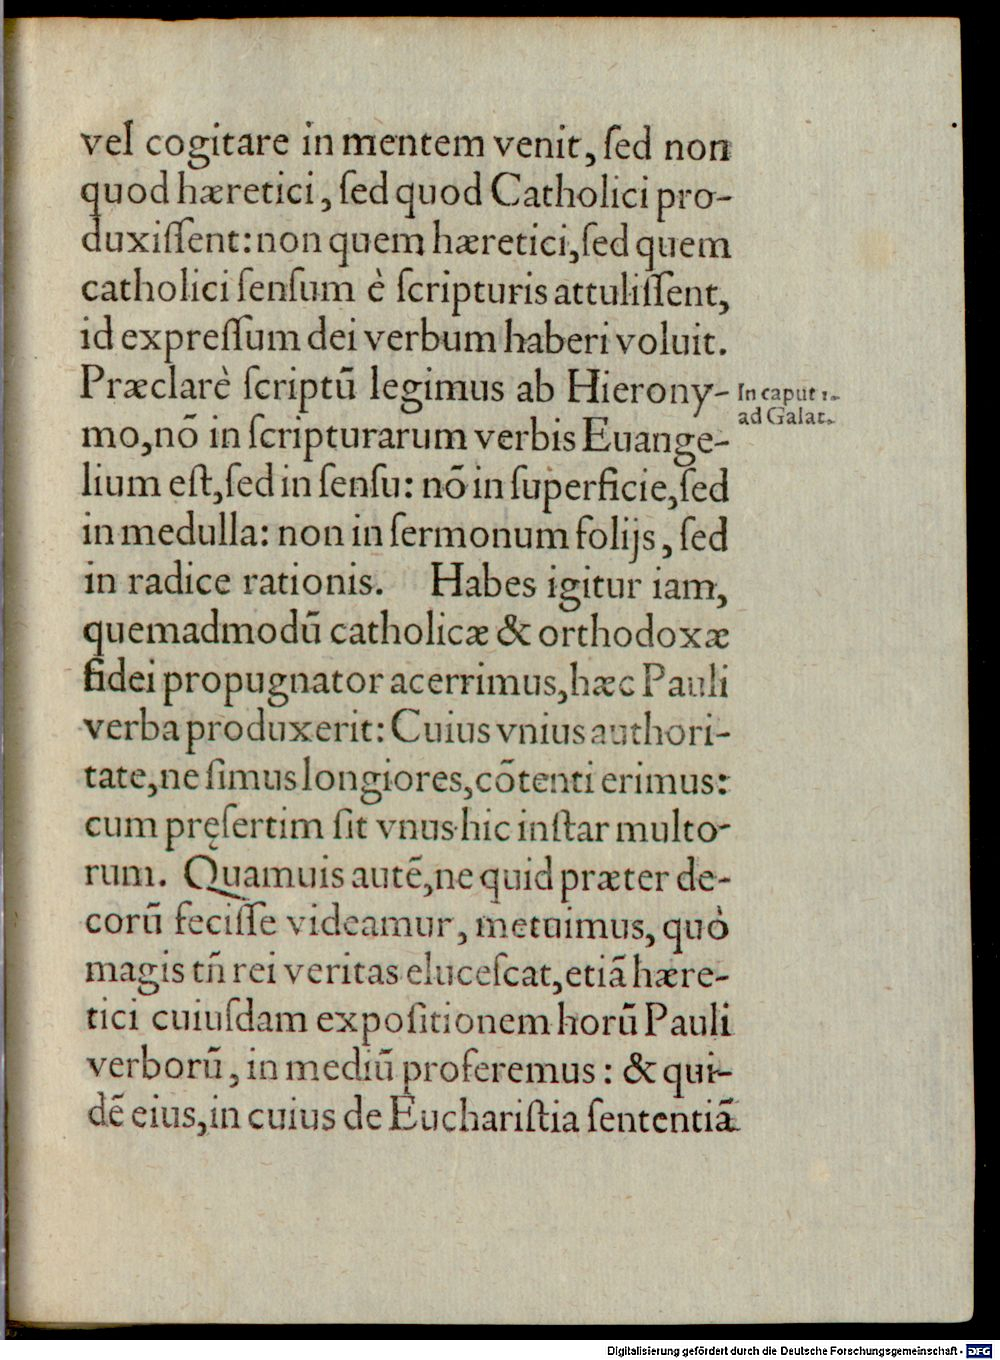 vel cogitare in mentem venit, ſed non
quod hæretici, ſed quod Catholici pro-
duxiſſent: non quem hæretici, ſed quem
catholici ſenſum è ſcripturis attuliſſent,
id expreſſum dei verbum haberi voluit.
Præclarè ſcriptū legimus ab Hierony-
mo, nō in ſcripturarum verbis Euange-
lium eſt, ſed in ſenſu: nō in ſuperficie, ſed
in medulla: non in ſermonum folijs, ſed
in radice rationis. Habes igitur iam,
quemadmodū catholicæ & orthodoxæ
fidei propugnator acerrimus, hæc Pauli
verba produxerit: Cuius vnius authori-
tate, ne ſimus longiores, cōtenti erimus:
cum pręſertim ſit vnus hic inſtar multo-
rum. Quamuis autē, ne quid præter de-
corū feciſſe videamur, metuimus, quò
magis tñ rei veritas eluceſcat, etiā hære-
tici cuiuſdam expoſitionem horū Pauli
verborū, in mediū proferemus: & qui-
dē eius, in cuius de Euchariſtia ſententiā
In caput 1.
ad Galat.
Digitalisierung gefördert durch die Deutsche Forschungsgemeinschaft - DFG